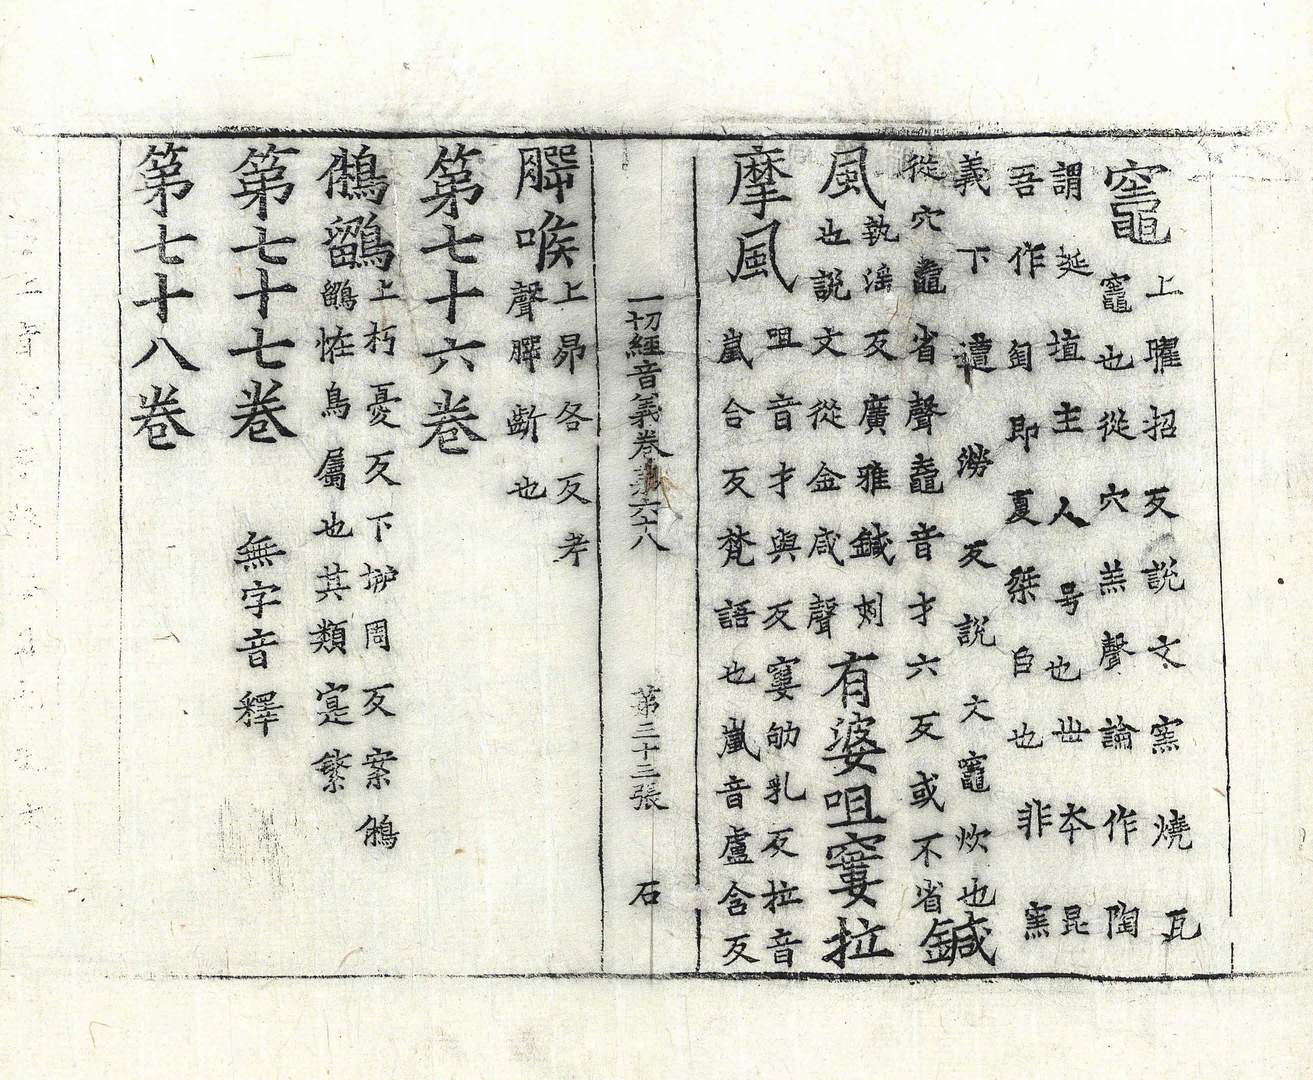 竈上曜招反說文窯燒瓦
竈也從穴羔聲論作陶
謂埏埴主人号也丗本昆
吾作匋即夏桀臣也非窯
義下遭澇反說文竈炊也
從穴鼀省聲鼀音才六反或不省鍼
風執滛反廣雅鍼刺
也說文從金咸聲有婆咀窶拉
摩風咀音才與反窶劬乳反拉音
嵐合反梵語也嵐音盧含反
一切經音義卷第六十八 第三十三張 石
腭喉上昂各反考
聲腭齗也
第七十六卷
鵂鶹上朽憂反下柳周反案鵂
鶹恠鳥屬也其類寔繁
第七十七卷 無字音釋
第七十八卷